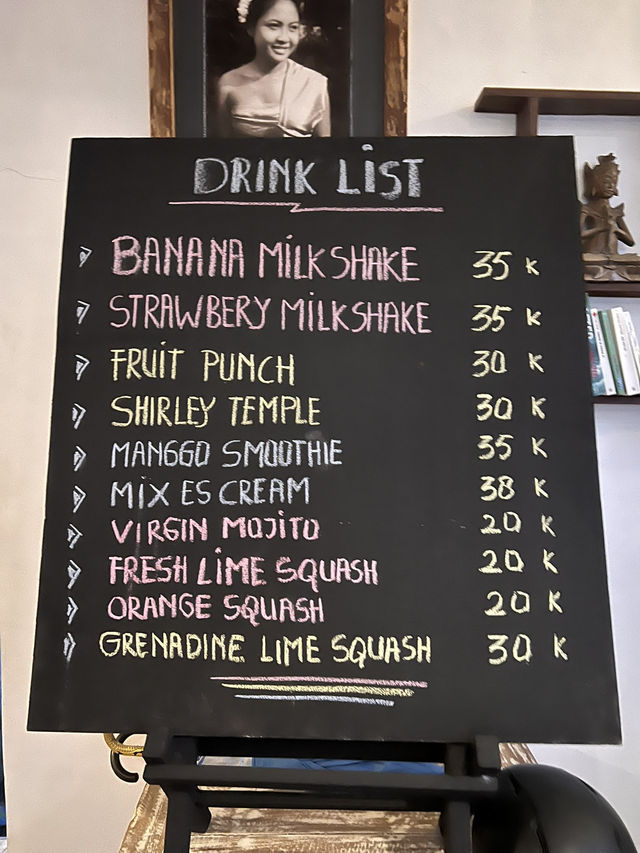 DRINK LIST
BANANA MILKSHAKE 35 K
STRAWBERY MILKSHAKE 35 K
FRUIT PUNCH 30 K
SHIRLEY TEMPLE 30 K
MANGGO SMOOTHIE 35 K
MIX ES CREAM 38 K
VIRGIN MOJITO 20 K
FRESH LIME SQUASH 20 K
ORANGE SQUASH 20 K
GRENADINE LIME SQUASH 30 K